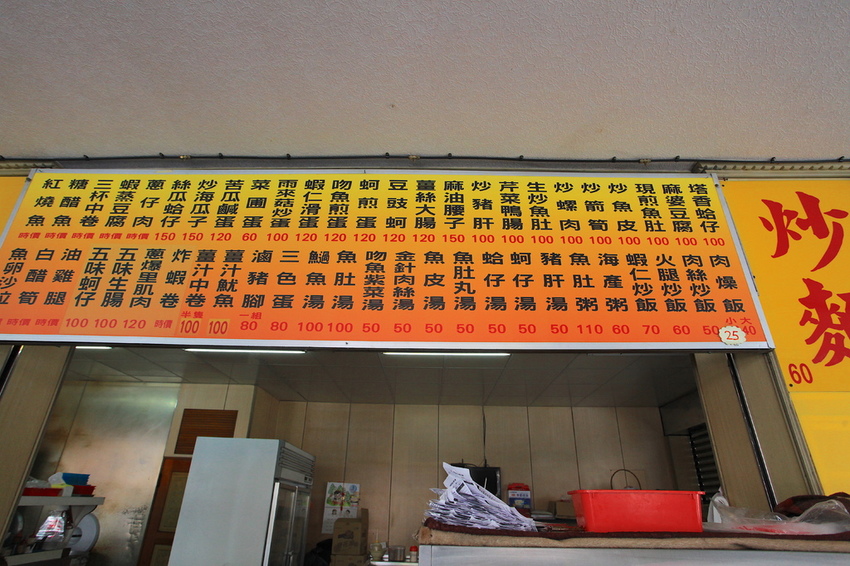 塔香蛤仔 100
麻婆豆腐 100
現煎魚肚 100
炒魚皮 100
炒箭筍 100
炒螺肉 100
生炒魚肚 100
芹菜鴨腸 100
炒豬肝 100
麻油腰子 150
薑絲大腸 120
豆豉蚵 120
蚵煎蛋 120
吻魚煎蛋 120
蝦仁滑蛋 120
雨來菇炒蛋 100
菜圃蛋 60
苦瓜鹹蛋 120
炒海瓜子 150
絲瓜蛤仔 150
蔥仔肉 時價
蝦蒸豆腐 時價
三杯中卷 時價
糖醋魚 時價
紅燒魚 時價
肉燥飯 小25 大40
肉絲炒飯
火腿炒飯 60
蝦仁炒飯 70
海產粥 60
魚肚粥 110
豬肝湯 50
蚵仔湯 50
蛤仔湯 50
魚肚丸湯 50
魚皮湯 50
金針肉絲湯 50
吻魚紫菜湯 50
魚肚湯 100
魚湯 100
三色蛋 80
滷豬腳 一組 80
薑汁魷魚 100
薑汁中卷 半隻 100
炸蝦卷 時價
蔥爆里肌肉 120
五味生腸 100
五味蚵仔 100
油雞腿 時價
白醋筍 時價
魚卵沙拉
炒麵
60